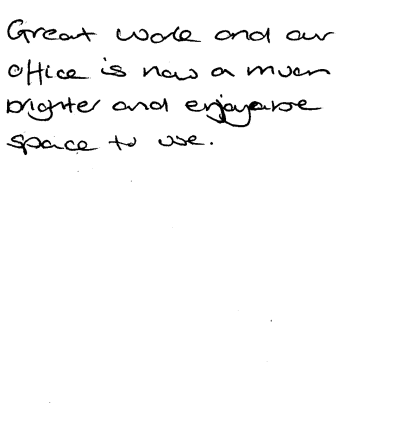 Great work and our
office is now a much
brighter and enjoyable
space to use.